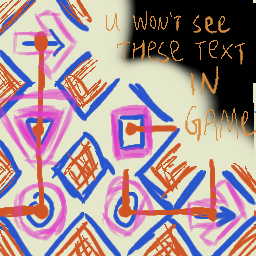 U WON'T SEE
THESE TEXT
IN
GAME